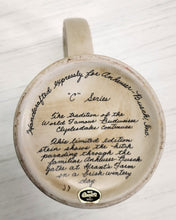 Handcrafted Expressly for Anheuser-Busch, Inc.
"C" Series
The tradition of the
World Famous Budweiser
Clydesdales continues.
This limited edition
stein shows the "hitch"
parading through the
familiar Anheuser-Busch
gates at Grant's Farm
on a brisk wintery
day.